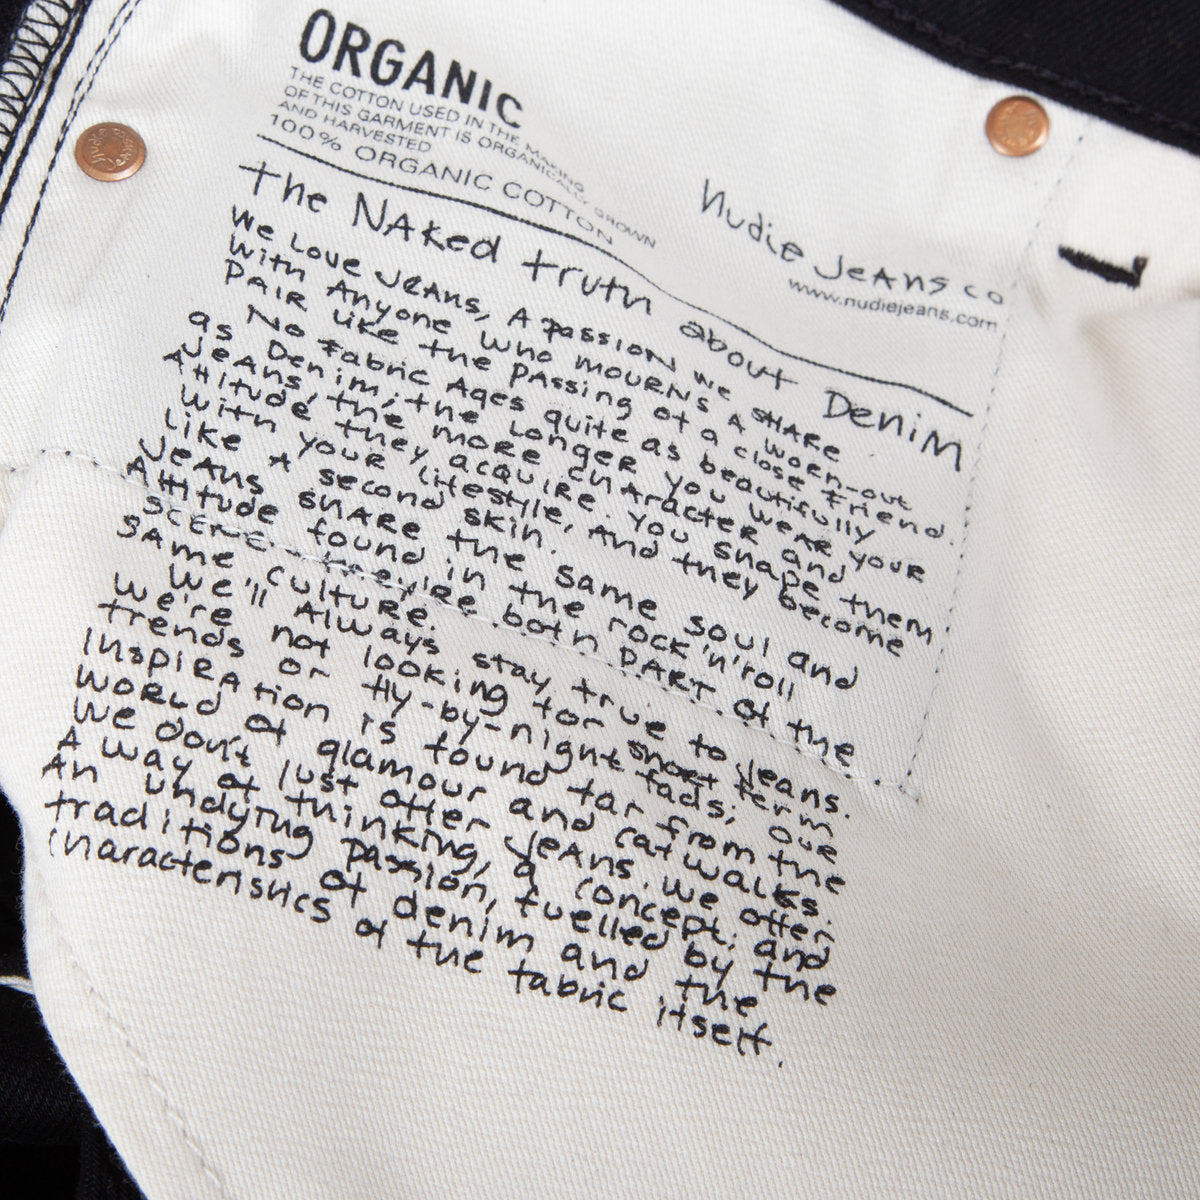 ORGANIC
THE COTTON USED IN THE MAKING
OF THIS GARMENT IS ORGANICALLY GROWN
AND HARVESTED
100% ORGANIC COTTON
Nudie Jeans co
www.nudiejeans.com
The Naked truth about Denim
We Love Jeans, A passion we SHARE
With Anyone who mourns A worn-out
PAIR like the PASSing of a close Friend.
No Fabric Ages quite as beautifully
as Denim; the Longer you wear your
Jeans, the more character and
Attitude they acquire. You shape them
With your lifestyle, And they become
Like A second skin.
Jeans share the same soul and
Attitude found in the rock'n'roll
SCENE - they're both PART of the
SAme culture.
We'll Always stay true to Jeans.
We're not looking for short term
trends or fly-by-night fads; OUR
INSPIRAtion is found far from the
WORLD of glamour and catwalks.
We don't just offer JeAns. We offer
A way of thinking, a concept; and
An undying passion, fuelled by the
traditions of denim and the
characteristics of the fabric itself.